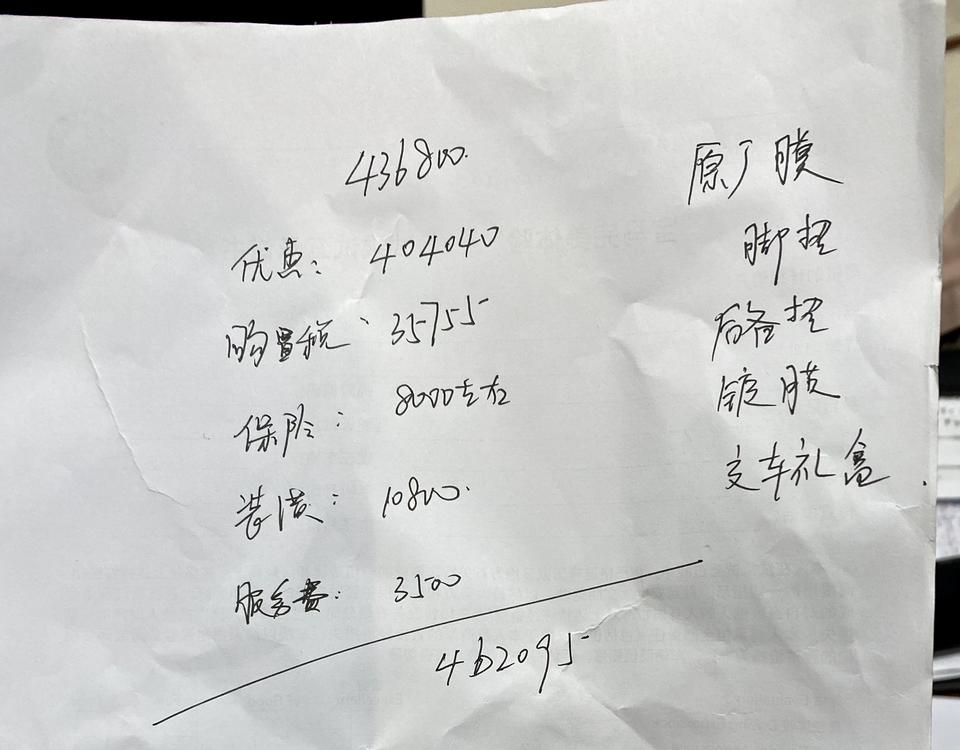 436800.
优惠: 404040
购置税: 35755
保险: 8000左右
装潢: 10800.
服务费: 3500
462095
原厂膜
脚垫
后备垫
镀膜
交车礼盒.